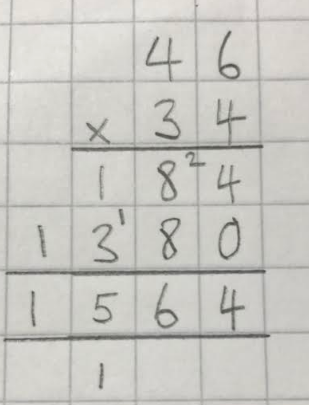 46
× 34
18²4
13¹80
1564
1